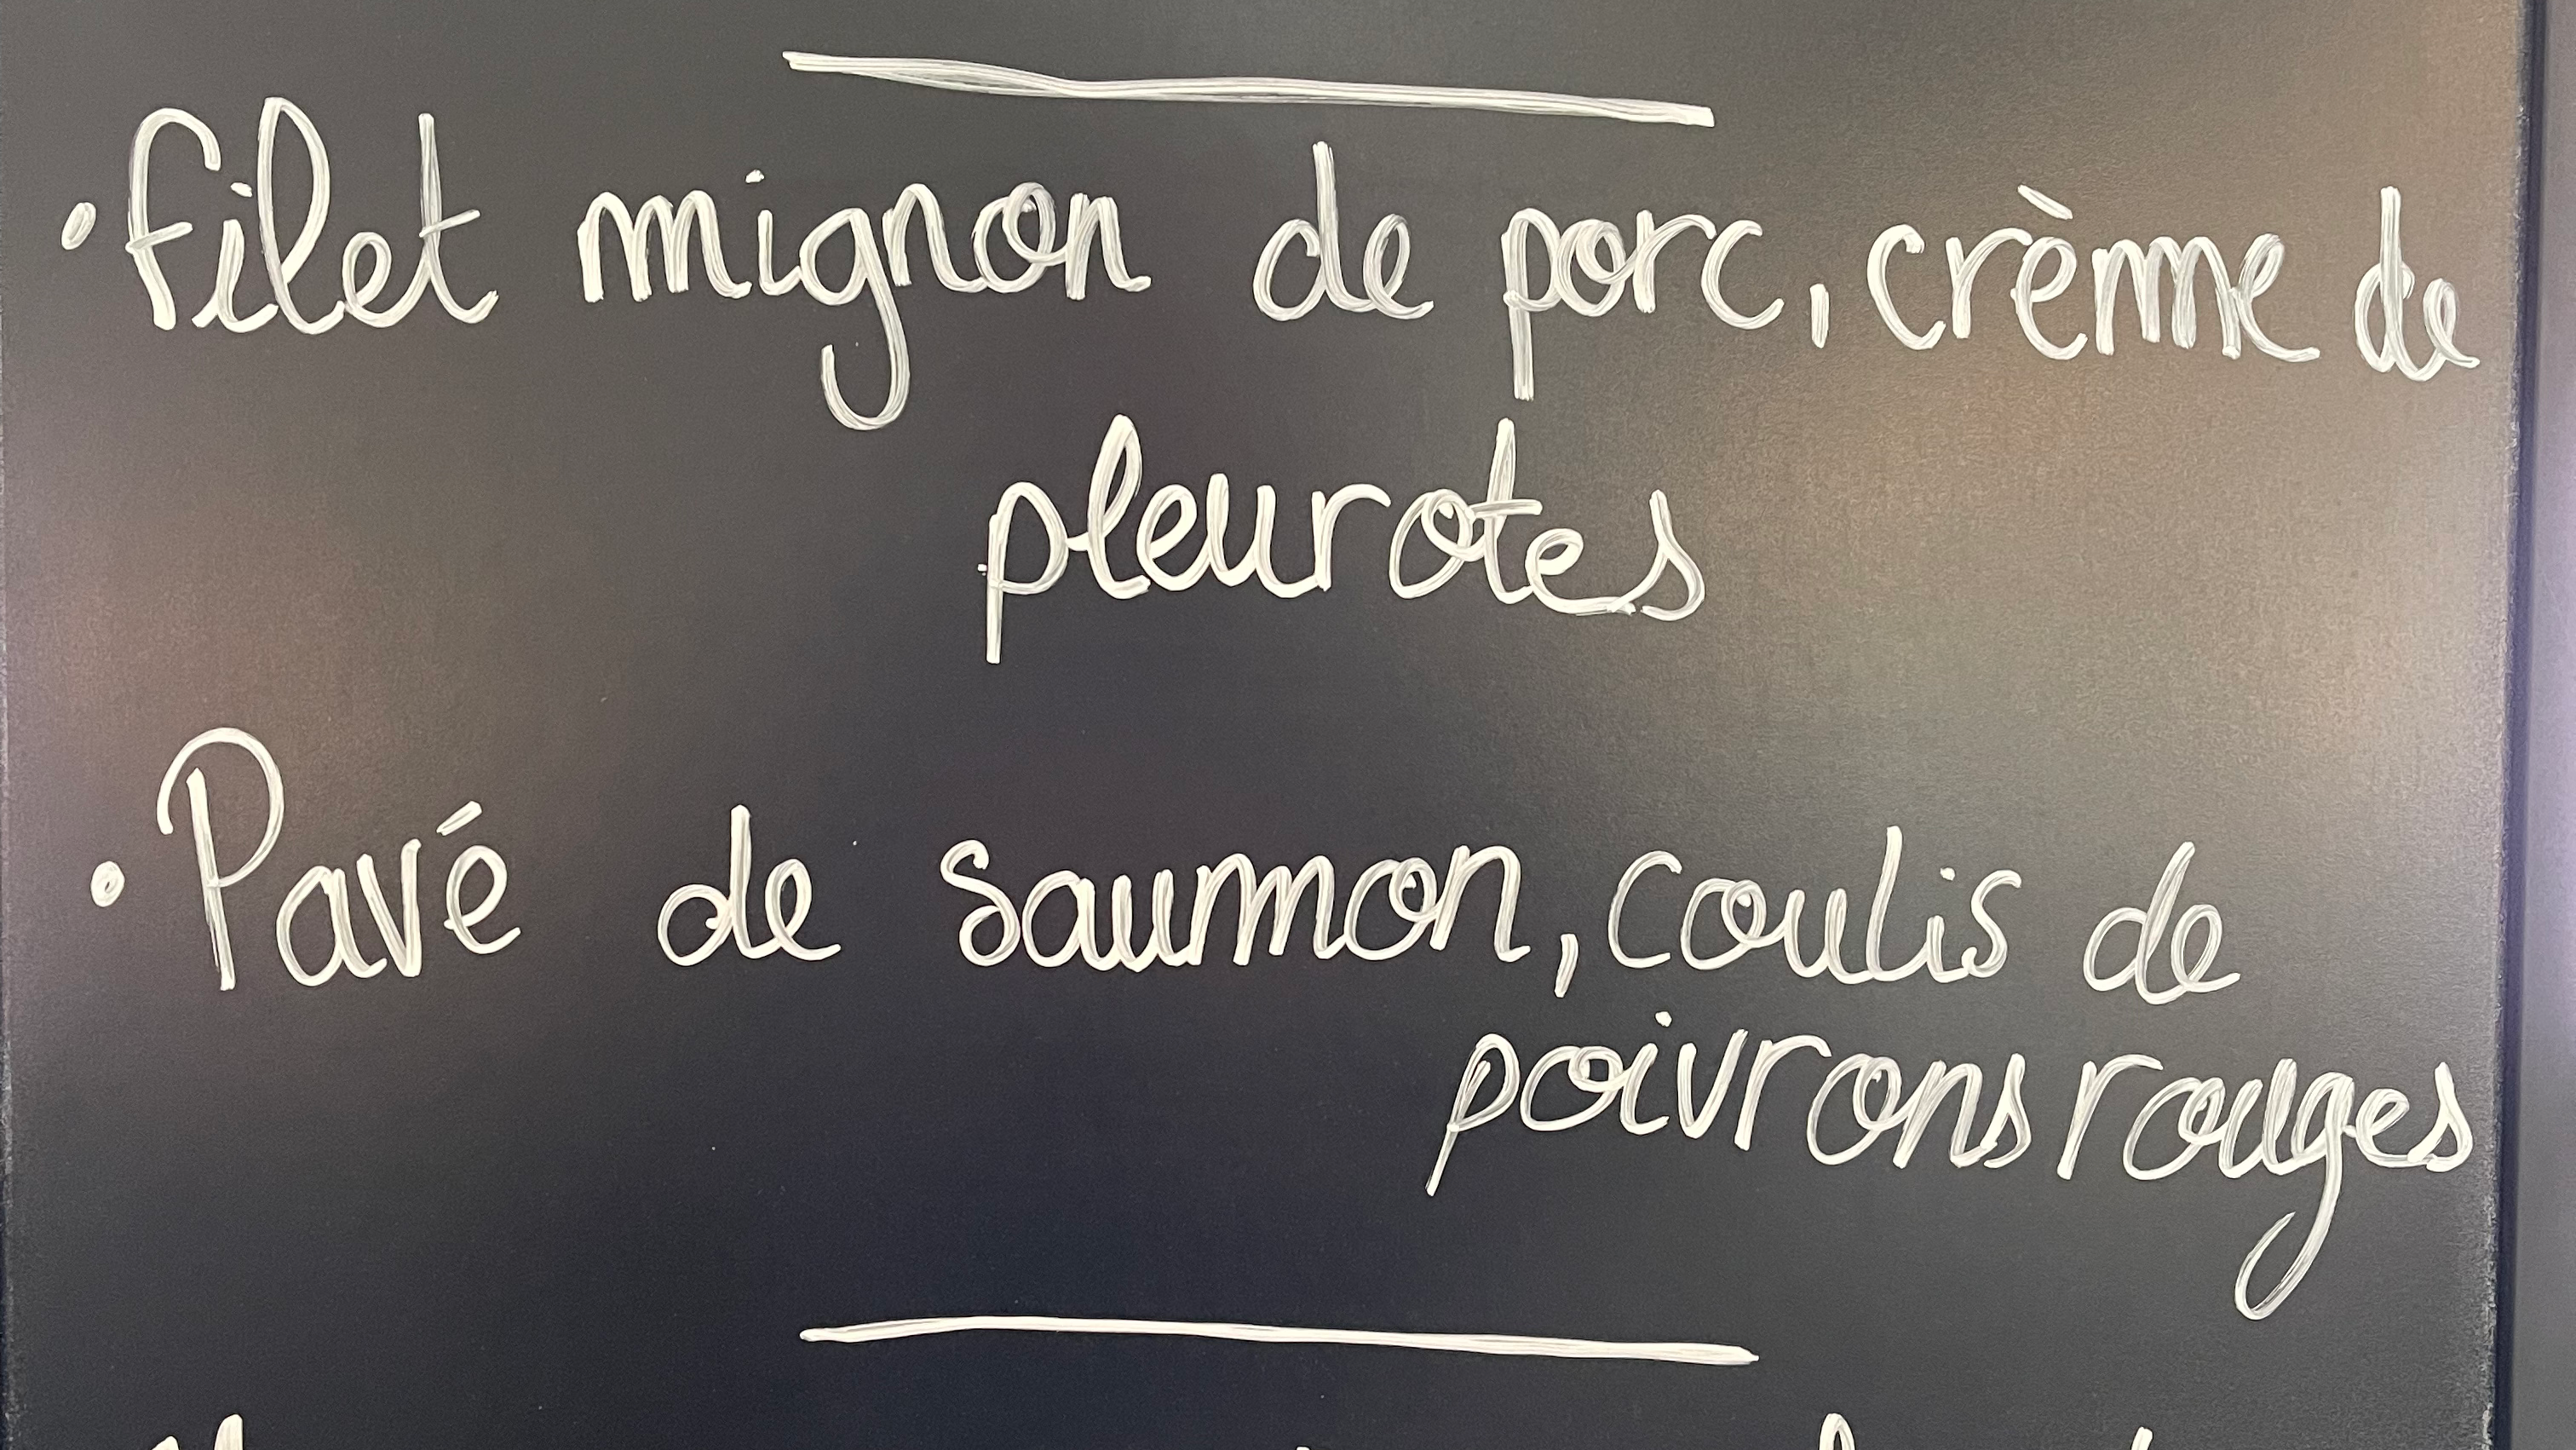 • Filet mignon de porc, crème de
pleurotes
• Pavé de saumon, coulis de
poivrons rouges